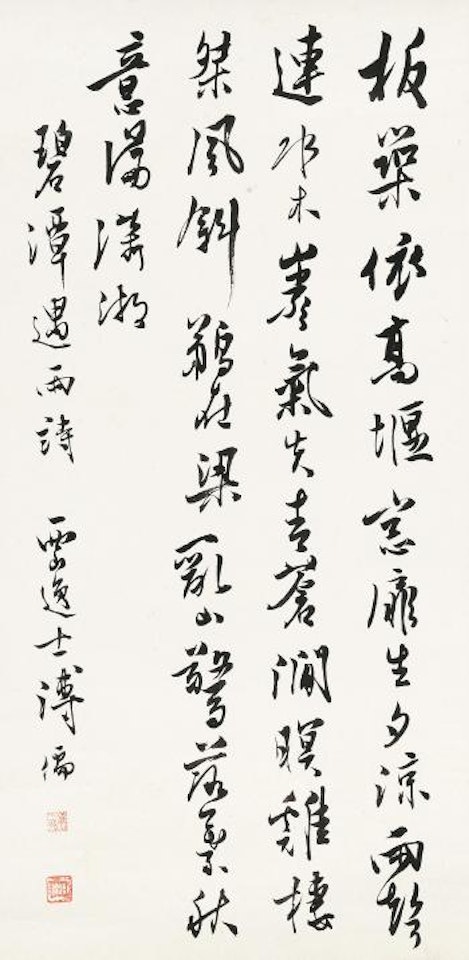 板築依高堰窓扉生夕涼雨聲
連水木氣失青蒼澗暝雞棲
桀風斜鵜在梁亂山驚落葉秋
意滿瀟湘
碧潭遇雨詩 西山逸士溥儒